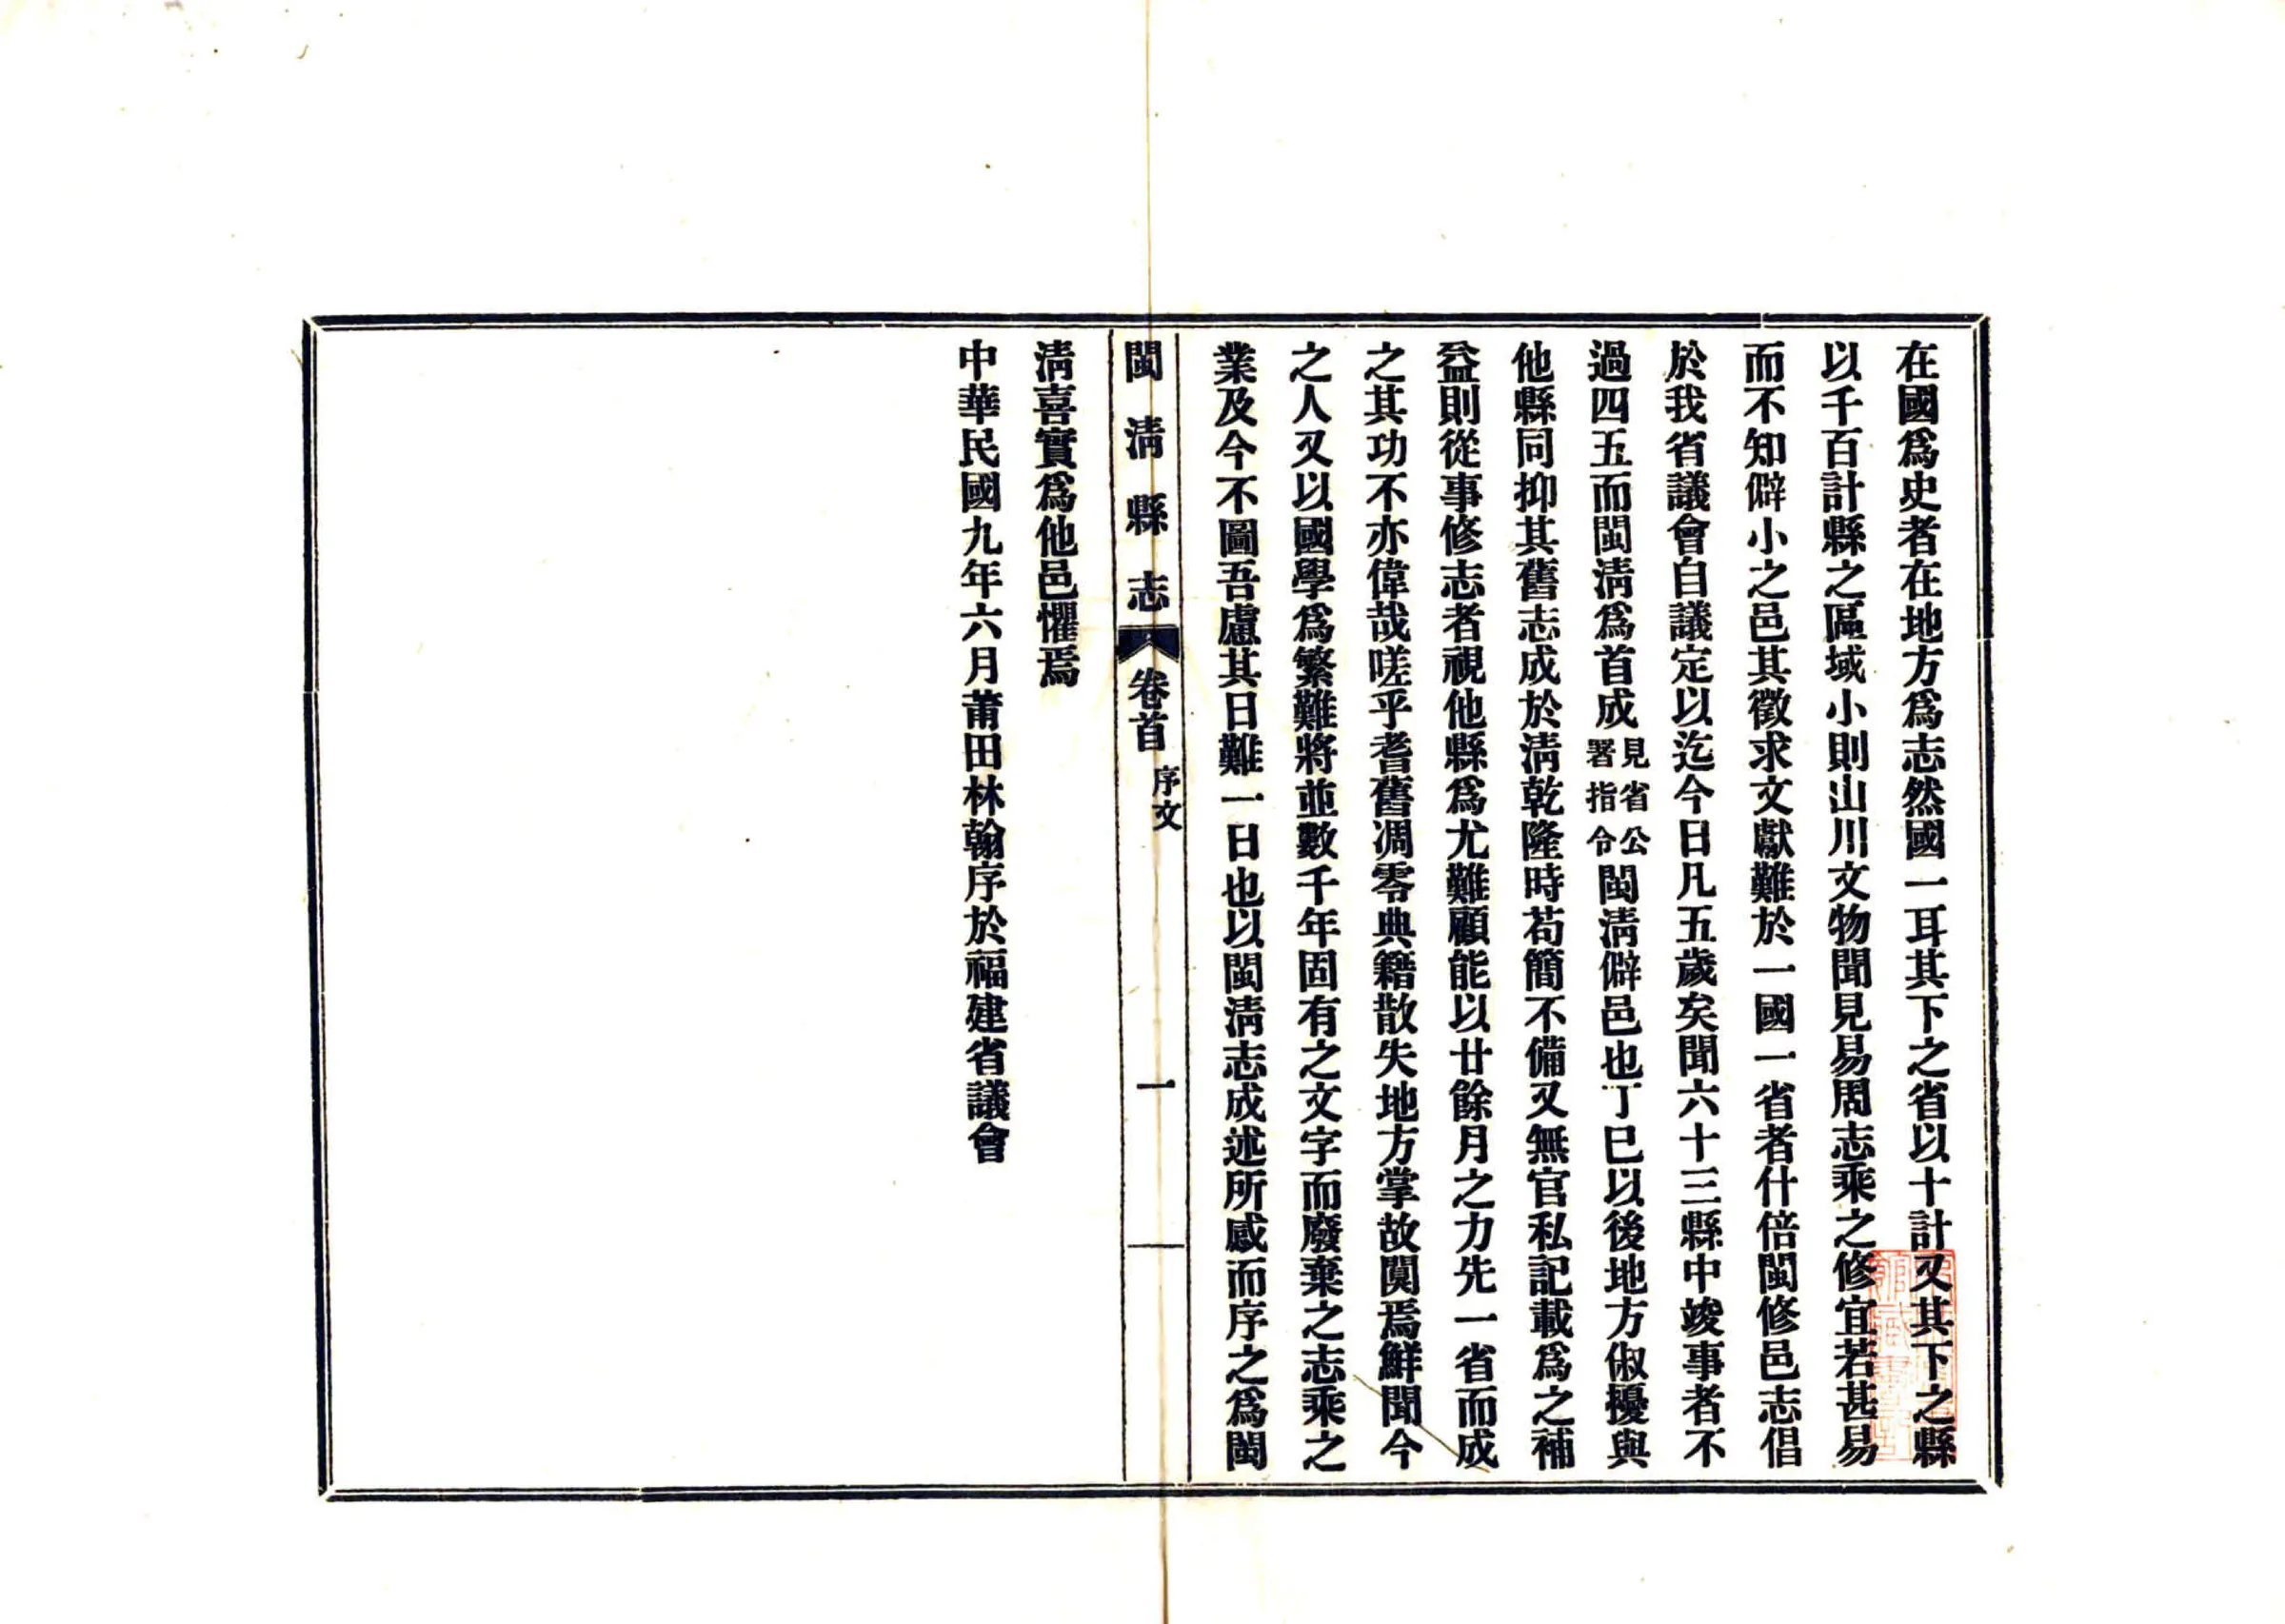 在國爲史者在地方爲志然國一耳其下之省以十計又其下之縣
以千百計縣之區域小則山川文物聞見易周志乘之修宜若甚易
而不知僻小之邑其徵求文獻難於一國一省者什倍閩修邑志倡
於我省議會自議定以迄今日凡五歲矣聞六十三縣中竣事者不
過四五而閩淸爲首成見省公署指令閩淸僻邑也丁巳以後地方俶擾與
他縣同抑其舊志成於淸乾隆時苟簡不備又無官私記載爲之補
益則從事修志者視他縣爲尤難顧能以廿餘月之力先一省而成
之其功不亦偉哉嗟乎耆舊凋零典籍散失地方掌故闃焉鮮聞今
之人又以國學爲繁難將並數千年固有之文字而廢棄之志乘之
業及今不圖吾慮其日難一日也以閩淸志成述所感而序之爲閩
閩淸縣志
卷首
序文
一
淸喜實爲他邑懼焉
中華民國九年六月莆田林翰序於福建省議會